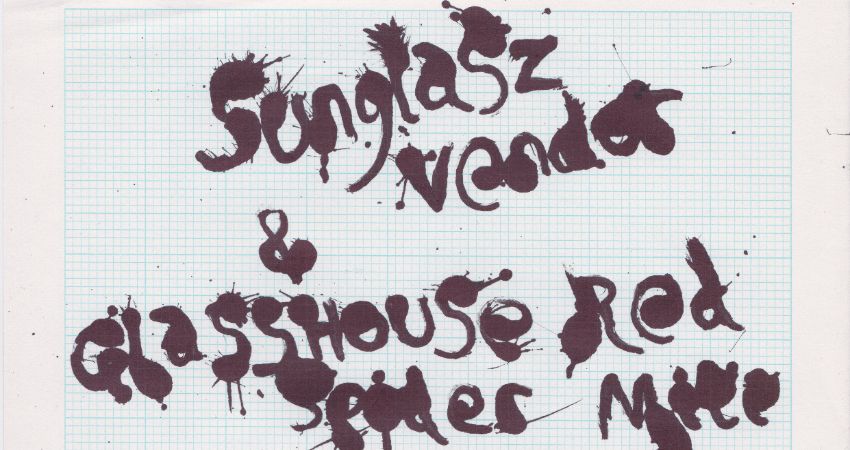 Sunglasz
vendor
&
GlassHouse Red
Spider Mite